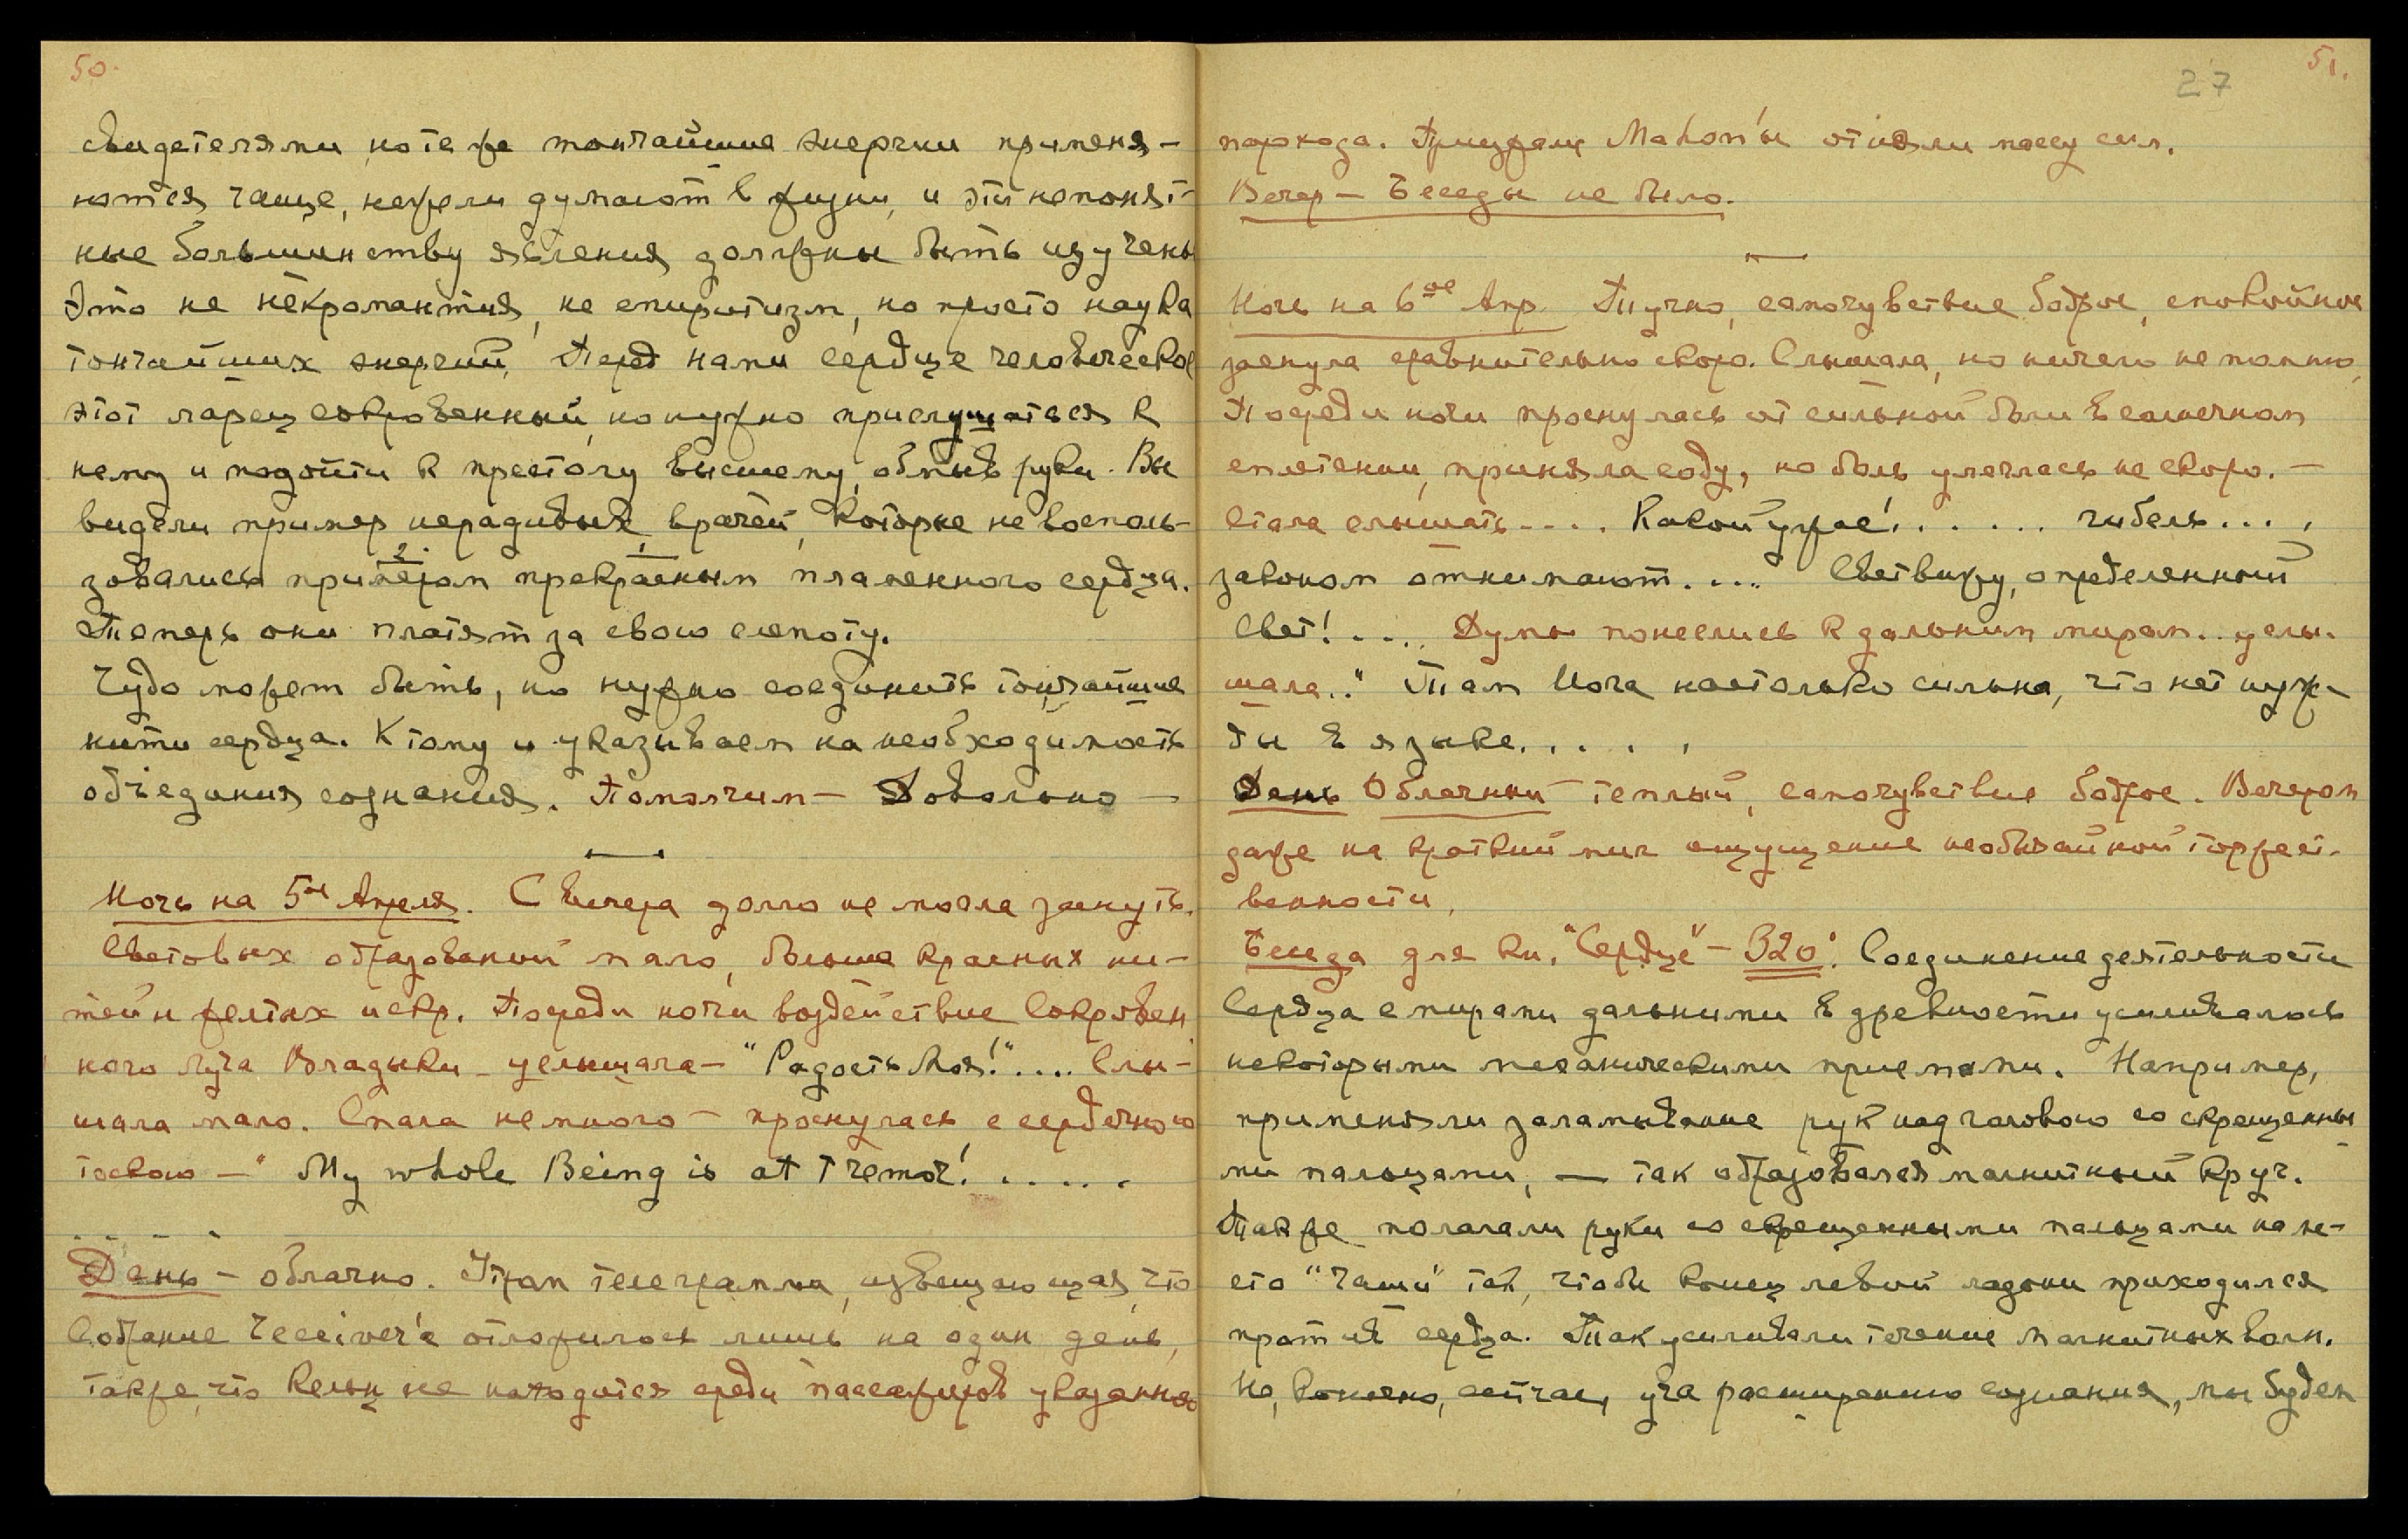 50.
свидетелями, но те же тончайшие энергии применя-
ются чаще, нежели думают в жизни, и эти непонят-
ные большинству явления должны быть изучены
Это не некромантия, не спиритизм, но просто наука
тончайших энергий. Перед нами сердце человеческое
этот ларец сокровенный, но нужно прислушаться к
нему и подойти к престолу Высшему, обмыв руки. Вы
видели пример нерадивых врачей, которые не восполь-
2. 1
зовались примером прекрасным пламенного сердца.
Теперь они платят за свою слепоту.
Чудо может быть, но нужно соединить тончайшие
нити сердца. К тому и указываем на необходимость
объединия сознания. Помолчим — Довольно —
Ночь на 5ое Апреля. С вечера долго не могла заснуть.
Световых образований мало, больше красных ни-
тей и желтых искр. Посреди ночи воздействие Сокровен
ного луча Владыки услышала — "Радость Моя!".... Слы-
шала мало. Спала немного — проснулась с сердечною
тоскою — " My whole Being is at Tremor! . . . . .
. . . .
День — облачно. Утром телеграмма, извещающая, что
Собрание receiver'а отложилось лишь на один день,
также, что Кельц не находится среди пассажиров указанного
51.
27
парохода. Приезжие отняли массу сил.
Вечер — Беседы не было.
Ночь на 6ое Апр. Тучно, самочувствие бодрое, спокойное
заснула сравнительно скоро. Слышала, но ничего не помню,
Посреди ночи проснулась от сильной боли в солнечном
сплетении, приняла соду, но боль улеглась не скоро. —
стала слышать .... Какой ужас! . . . . . гибель ... ,
законом отнимают. ... Свет вижу, определенный
Свет! . ... Думы понеслись к дальним мирам.. услы-
шала.." Там Йога настолько сильна, что нет нуж-
ды в языке. . . . .
День Облачный — теплый, самочувствие бодрое. Вечером
даже на краткий миг ощущение необычайной торжест-
венности.
Беседа для кн. "Сердце" — 320. Соединение деятельности
Сердца с мирами дальними в древности усиливалось
некоторыми механическими приемами. Например,
применяли заламывание рук над головою со скрещенны
ми пальцами, — так образовался магнитный круг.
Также полагали руки со скрещенными пальцами на ме-
сто "Чаши" так, чтобы конец левой ладони приходился
против сердца. Так усиливали течение магнитных волн.
Но, конечно, сейчас, уча расширению сознания, мы будем